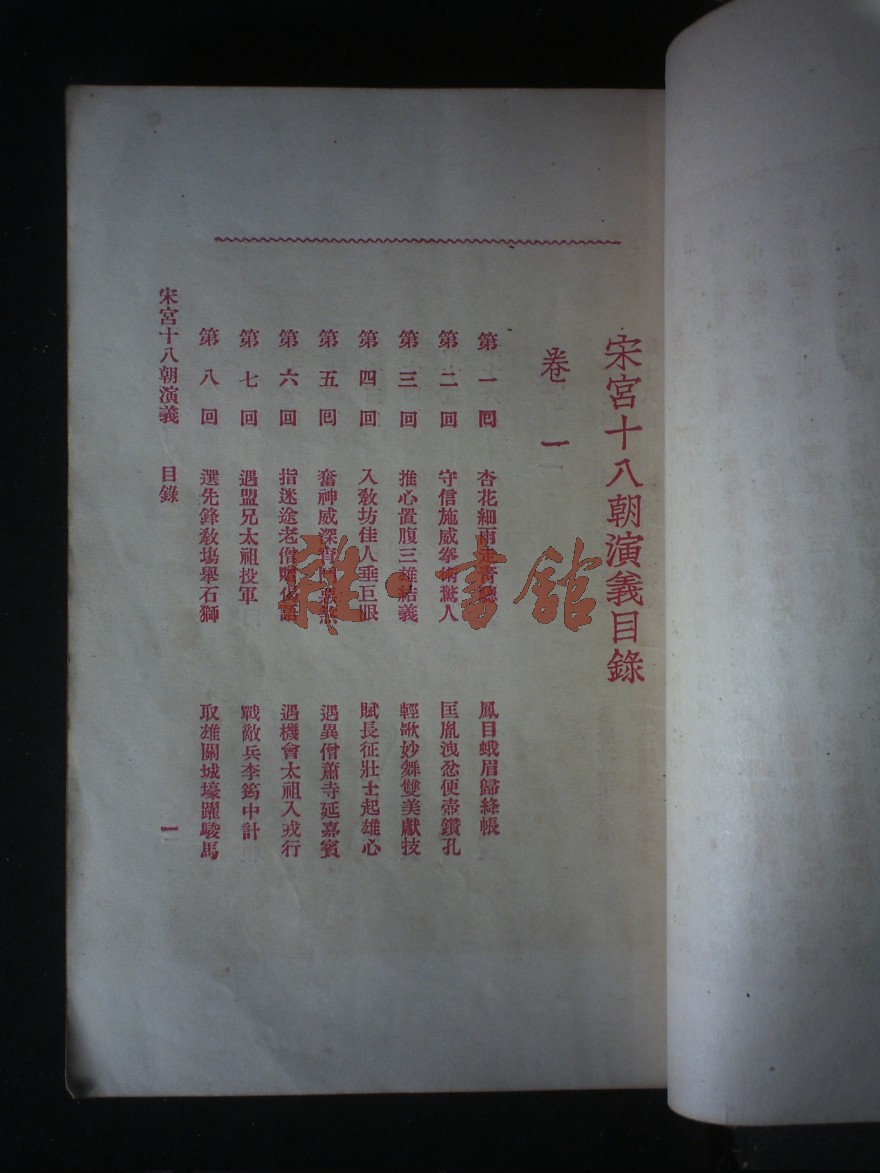 宋宮十八朝演義目錄
卷一
第一囘 杏花細雨 鳳目蛾眉歸絳帳
第二回 守信施威拳 驚人 匡胤洩忿便壺鑽孔
第三回 推心置腹三雄結義 輕歌妙舞雙美獻技
第四回 入敎坊佳人垂巨眼 賦長征壯士起雄心
第五囘 奮神威深宵 遇異僧蕭寺延嘉賓
第六回 指迷途老僧贈偈語 遇機會太祖入戎行
第七回 遇盟兄太祖投軍 戰敵兵李筠中計
第八回 選先鋒敎塲舉石獅 取雄關城壕躍駿馬
宋宮十八朝演義 目錄 一
雜·書館